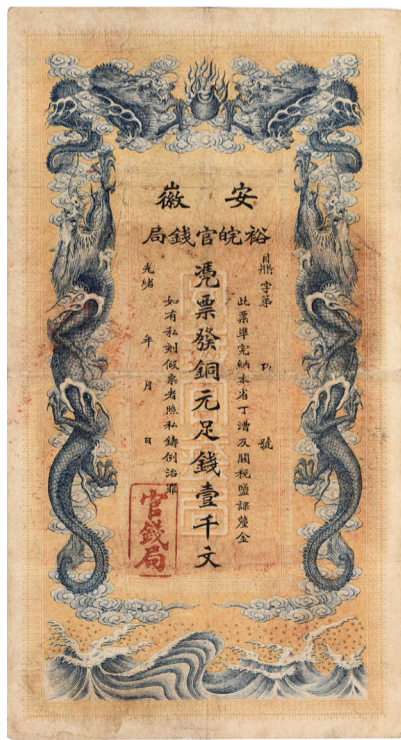 安徽
裕皖官錢局
鼎字第　號
此票準完納本省丁漕及關稅鹽課釐金
憑票發銅元足錢壹千文
如有私刻假票者照私鑄例治罪
光緒　年　月　日
官錢局